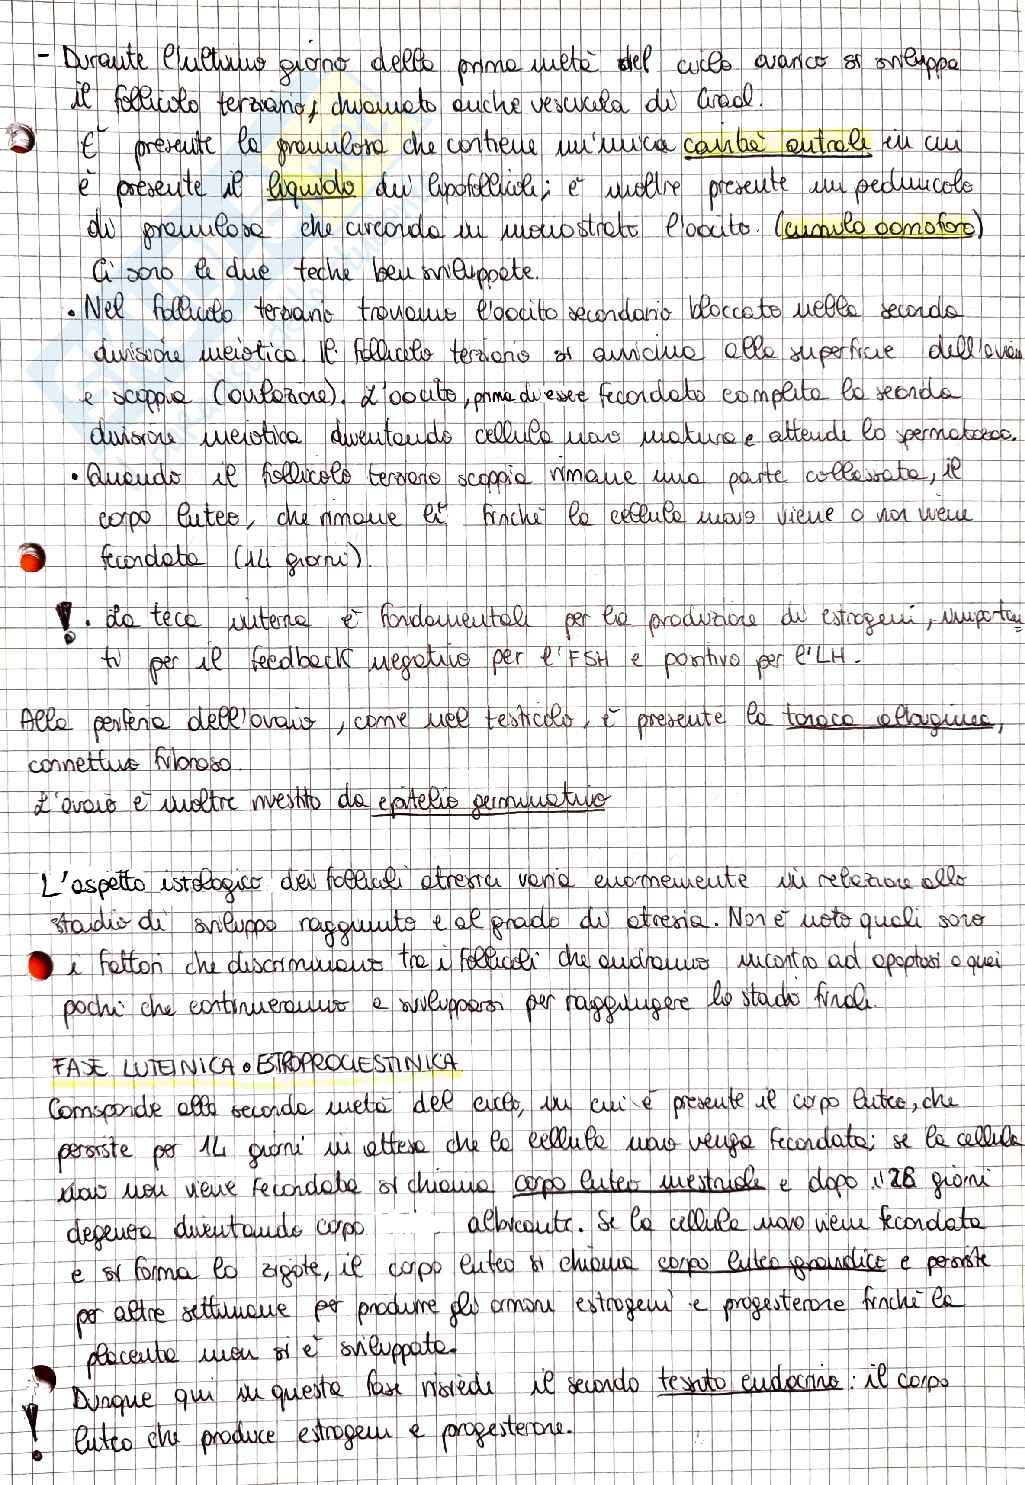 - Durante l'ultimo giorno della prima metà del ciclo ovarico si sviluppa
il follicolo terziario, chiamato anche vescicola di Graaf.
È presente la granulosa che contiene un'unica cavità antrale in cui
è presente il liquido dei follicoli; è inoltre presente un peduncolo
di granulosa che circonda in monostrato l'oocito. (cumulo ooforo)
Ci sono le due teche ben sviluppate.
• Nel follicolo terziario troviamo l'oocito secondario bloccato nella seconda
divisione meiotica. Il follicolo terziario si avvicina alla superficie dell'ovaio
e scoppia (ovulazione). L'oocito, prima di essere fecondato completa la seconda
divisione meiotica diventando cellula uovo matura e attende lo spermatozoo.
• Quando il follicolo terziario scoppia rimane una parte collassata, il
corpo luteo, che rimane lì finché la cellula uovo viene o non viene
fecondata (14 giorni).
! • La teca interna è fondamentale per la produzione di estrogeni, importan
ti per il feedback negativo per l'FSH e positivo per l'LH.
Alla periferia dell'ovaio, come nel testicolo, è presente la tonaca albuginea,
connettivo fibroso.
L'ovaio è inoltre rivestito da epitelio germinativo
L'aspetto istologico dei follicoli atresici varia enormemente in relazione allo
stadio di sviluppo raggiunto e al grado di atresia. Non è noto quali sono
i fattori che discriminano tra i follicoli che andranno incontro ad apoptosi o quei
pochi che continueranno a svilupparsi per raggiungere lo stadio finale.
FASE LUTEINICA o ESTROPROGESTINICA
Corrisponde alla seconda metà del ciclo, in cui è presente il corpo luteo, che
persiste per 14 giorni in attesa che la cellula uovo venga fecondata; se la cellula
uovo non viene fecondata si chiama corpo luteo mestruale e dopo i 28 giorni
degenera diventando corpo albicante. Se la cellula uovo viene fecondata
e si forma lo zigote, il corpo luteo si chiama corpo luteo gravidico e persiste
per altre settimane per produrre gli ormoni estrogeni e progesterone finché la
placenta non si è sviluppata.
! Dunque qui in questa fase risiede il secondo tessuto endocrino: il corpo
luteo che produce estrogeni e progesterone.